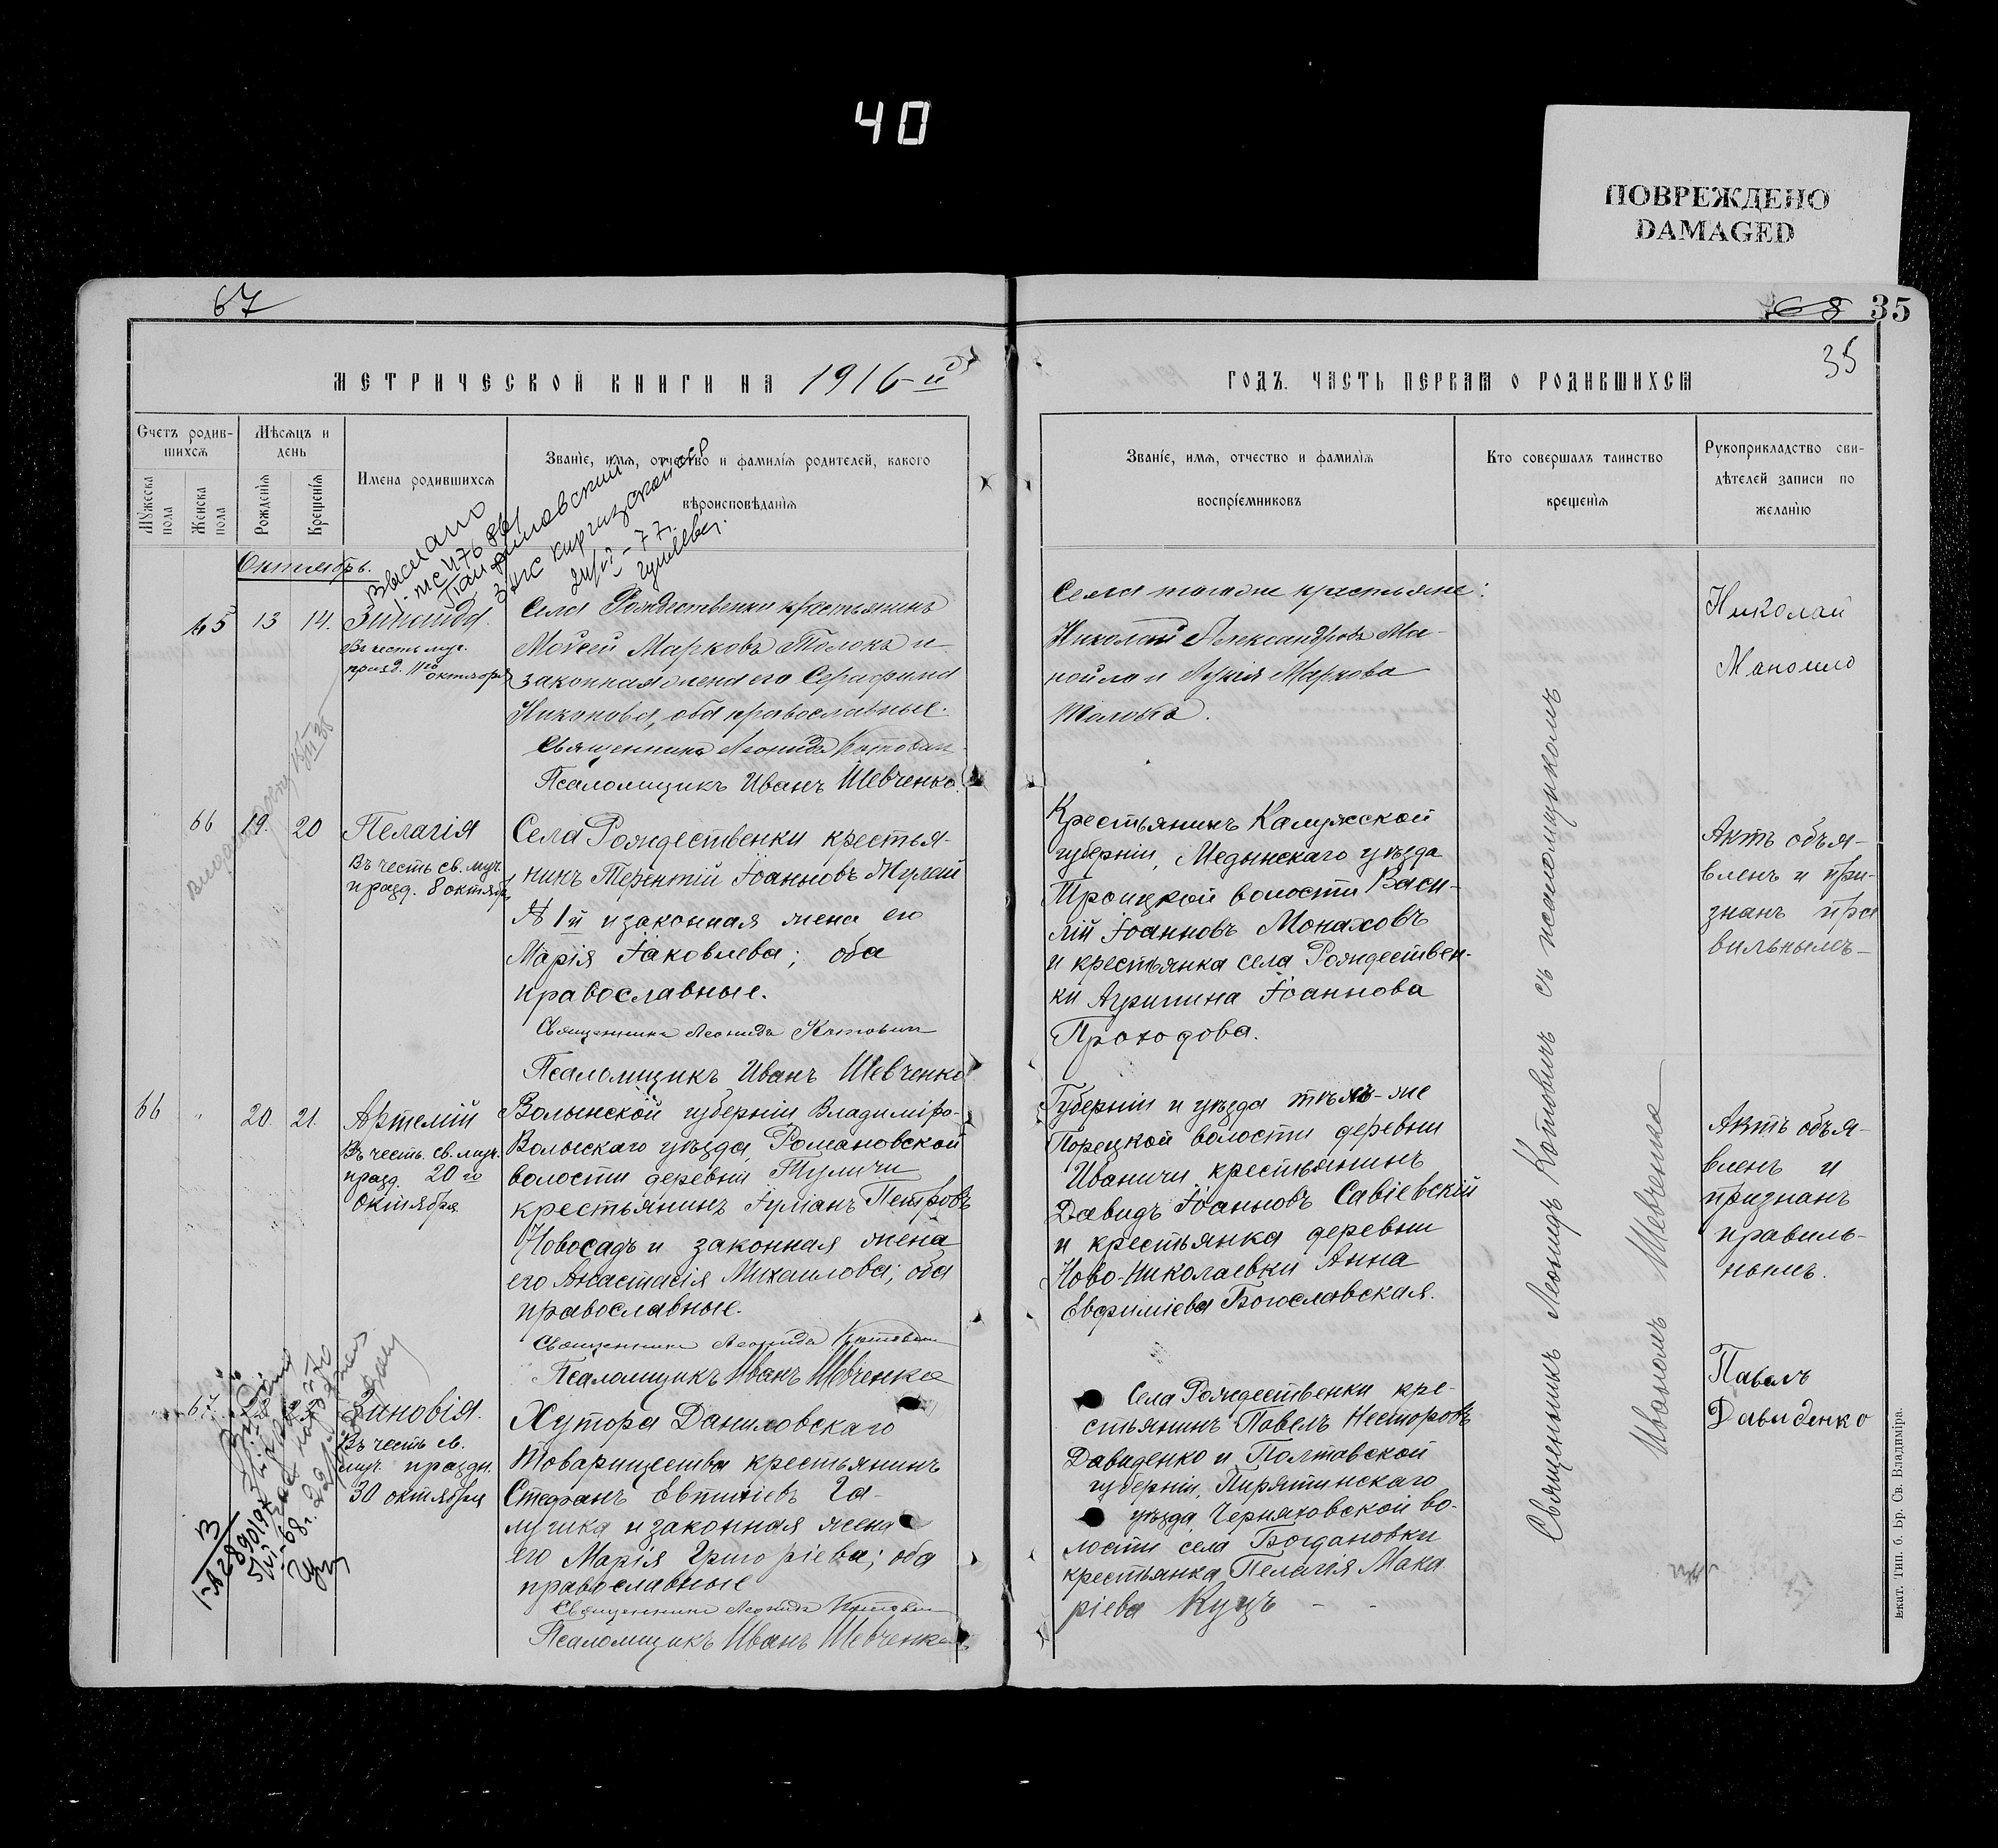 40
ПОВРЕЖДЕНО
DAMAGED
67
68 35
35
МЕТРИЧЕСКОЙ КНИГИ НА 1916-й
ГОДЪ. ЧАСТЬ ПЕРВАЯ О РОДИВШИХСЯ
Счетъ родив-
шихся
Мѣсяцъ и
день
Мужеска
пола
Женска
пола
Рожденія
Крещенія
Имена родившихся
Званіе, имя, отчество и фамилія родителей, какого
вѣроисповѣданія
Званіе, имя, отчество и фамилія
воспріемниковъ
Кто совершалъ таинство
крещенія
Рукоприкладство сви-
дѣтелей записи по
желанію
Октябрь.
Выслано
65 13 14. Зинаида.
Въ честь муч.
празд. 11го
октября
Села Рождественки крестьянинъ
Мойсей Марковъ Толокъ и
законная жена его Серафима
Никонова, оба православные.
Священникъ Леонидъ Котовичъ
Псаломщикъ Иванъ Шевченко.
Села того же крестьяне:
Николай Александровъ Ма-
нойло и Маркова
Николай
Маноило
66 19. 20 Пелагія
Въ честь св. муч.
празд. 8 октября
Села Рождественки крестья-
нинъ Терентій Іоанновъ
№ 1й и законная жена его
Марія Іаковлева; оба
православные.
Священникъ Леонидъ Котовичъ
Псаломщикъ Иванъ Шевченко
Крестьянинъ Калужской
губерніи, Медынскаго уѣзда
Троицкой волости Васи-
лій Іоанновъ Монаховъ
и крестьянка села Рождествен-
ки Агрипина Іоаннова
Проходова.
Актъ объя-
вленъ и при-
знанъ пра
вильнымъ-
66 " 20. 21. Артемій
Въ честь св. муч.
празд. 20го
октября
Волынской губерніи Владиміро-
Волынскаго уѣзда, Романовской
волости деревни Туличи
крестьянинъ Іуліанъ Петровъ
Новосадъ и законная жена
его Анастасія Михаилова; оба
православные.
Священникъ Леонидъ Котовичъ
Псаломщикъ Иванъ Шевченко
Губерніи и уѣзда тѣхъ-же
Порецкой волости деревни
Иваничи крестьянинъ
Давидъ Іоанновъ Савіевскій
и крестьянка деревни
Ново-Николаевки Анна
Евфиміева Богославская.
Актъ объя-
вленъ и
признанъ
правиль-
нымъ.
67 Зиновія.
Въ честь св.
муч. праздн.
30 октября
Хутора Даниловскаго
Товарищества крестьянинъ
Стефанъ Евтихіевъ Га-
лушка и законная жена
его Марія Григоріева; оба
православные
Священникъ Леонидъ Котовичъ
Псаломщикъ Иванъ Шевченко
Села Рождественки кре-
стьянинъ Павелъ Несторовъ
Давиденко и Полтавской
губерніи, Пирятинскаго
уѣзда, Черняховской во-
лости села Богдановки
крестьянка Пелагія Мака
ріева Куцъ - -
Павелъ
Давиденко
Священникъ Леонидъ Котовичъ съ псаломщикомъ
Иваномъ Шевченко
Екат. Тип. б. Бр. Св. Владиміра.